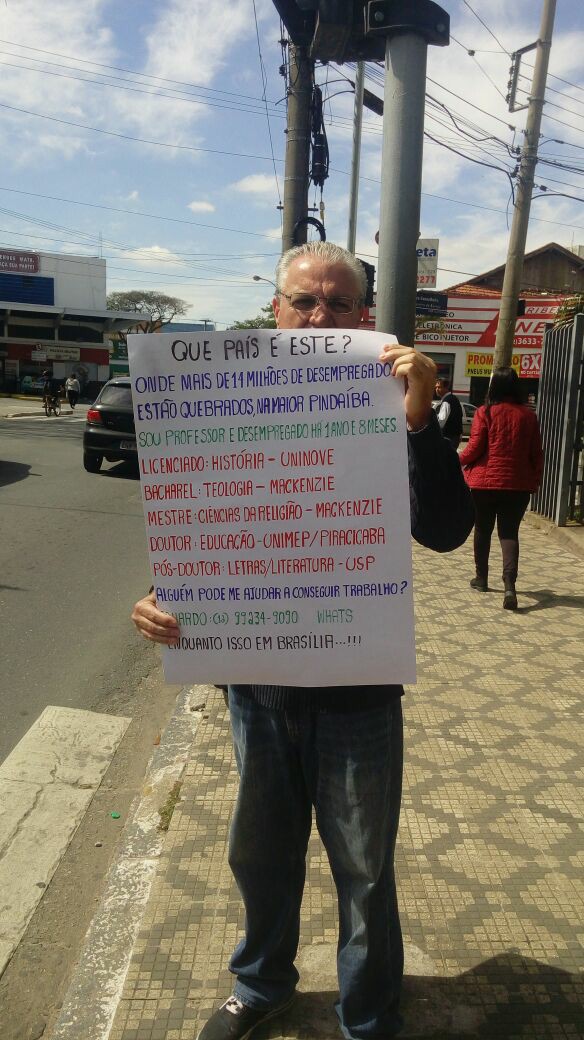 QUE PAÍS É ESTE?
ONDE MAIS DE 14 MILHÕES DE DESEMPREGADO
ESTÃO QUEBRADOS, NA MAIOR PINDAÍBA.
SOU PROFESSOR E DESEMPREGADO HÁ 1 ANO E 8 MESES.
LICENCIADO: HISTÓRIA - UNINOVE
BACHAREL: TEOLOGIA - MACKENZIE
MESTRE: CIÊNCIAS DA RELIGIÃO - MACKENZIE
DOUTOR: EDUCAÇÃO - UNIMEP/PIRACICABA
PÓS-DOUTOR: LETRAS/LITERATURA - USP
ALGUÉM PODE ME AJUDAR A CONSEGUIR TRABALHO?
NARDO: 99234-9090 WHATS
ENQUANTO ISSO EM BRASÍLIA...!!!
eta
277
RIBE
NE
3633-
6X